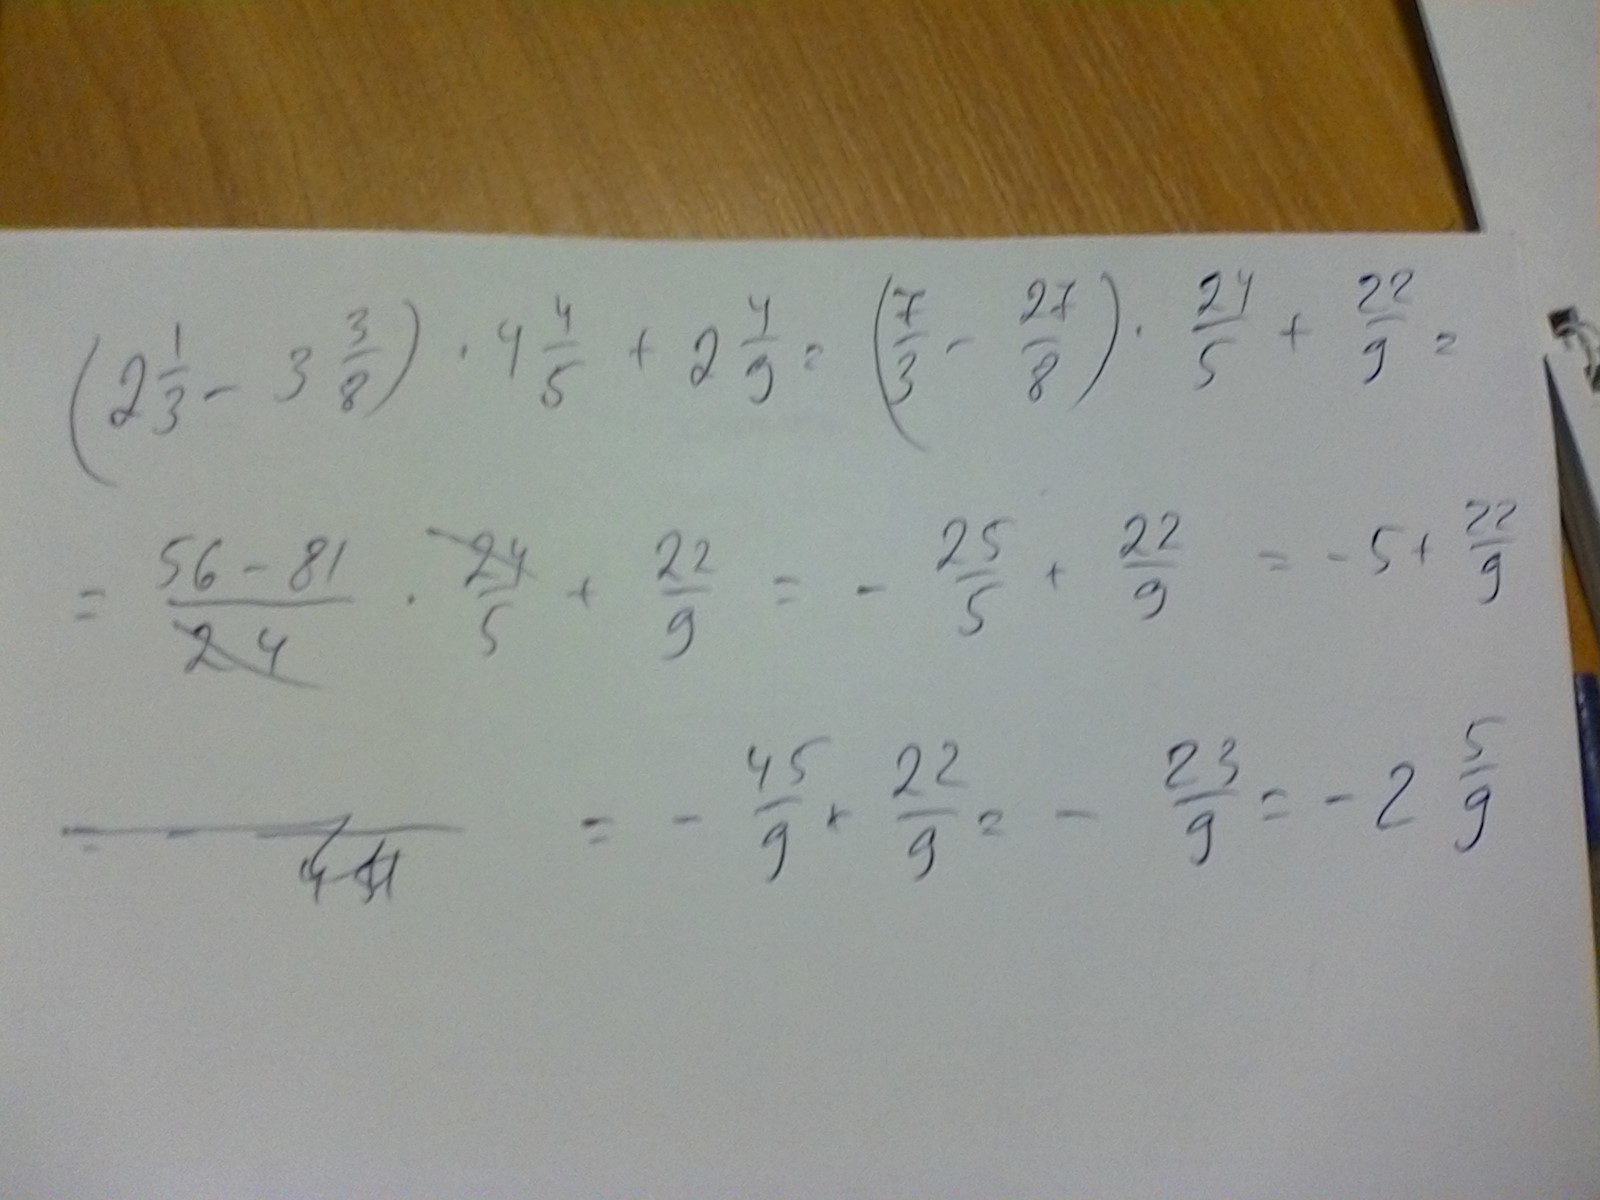 (2 1/3 - 3 3/8) · 4 4/5 + 2 4/9 = (7/3 - 27/8) · 24/5 + 22/9 =
= (56 - 81)/24 · 24/5 + 22/9 = - 25/5 + 22/9 = - 5 + 22/9
= - 45/9 + 22/9 = - 23/9 = - 2 5/9